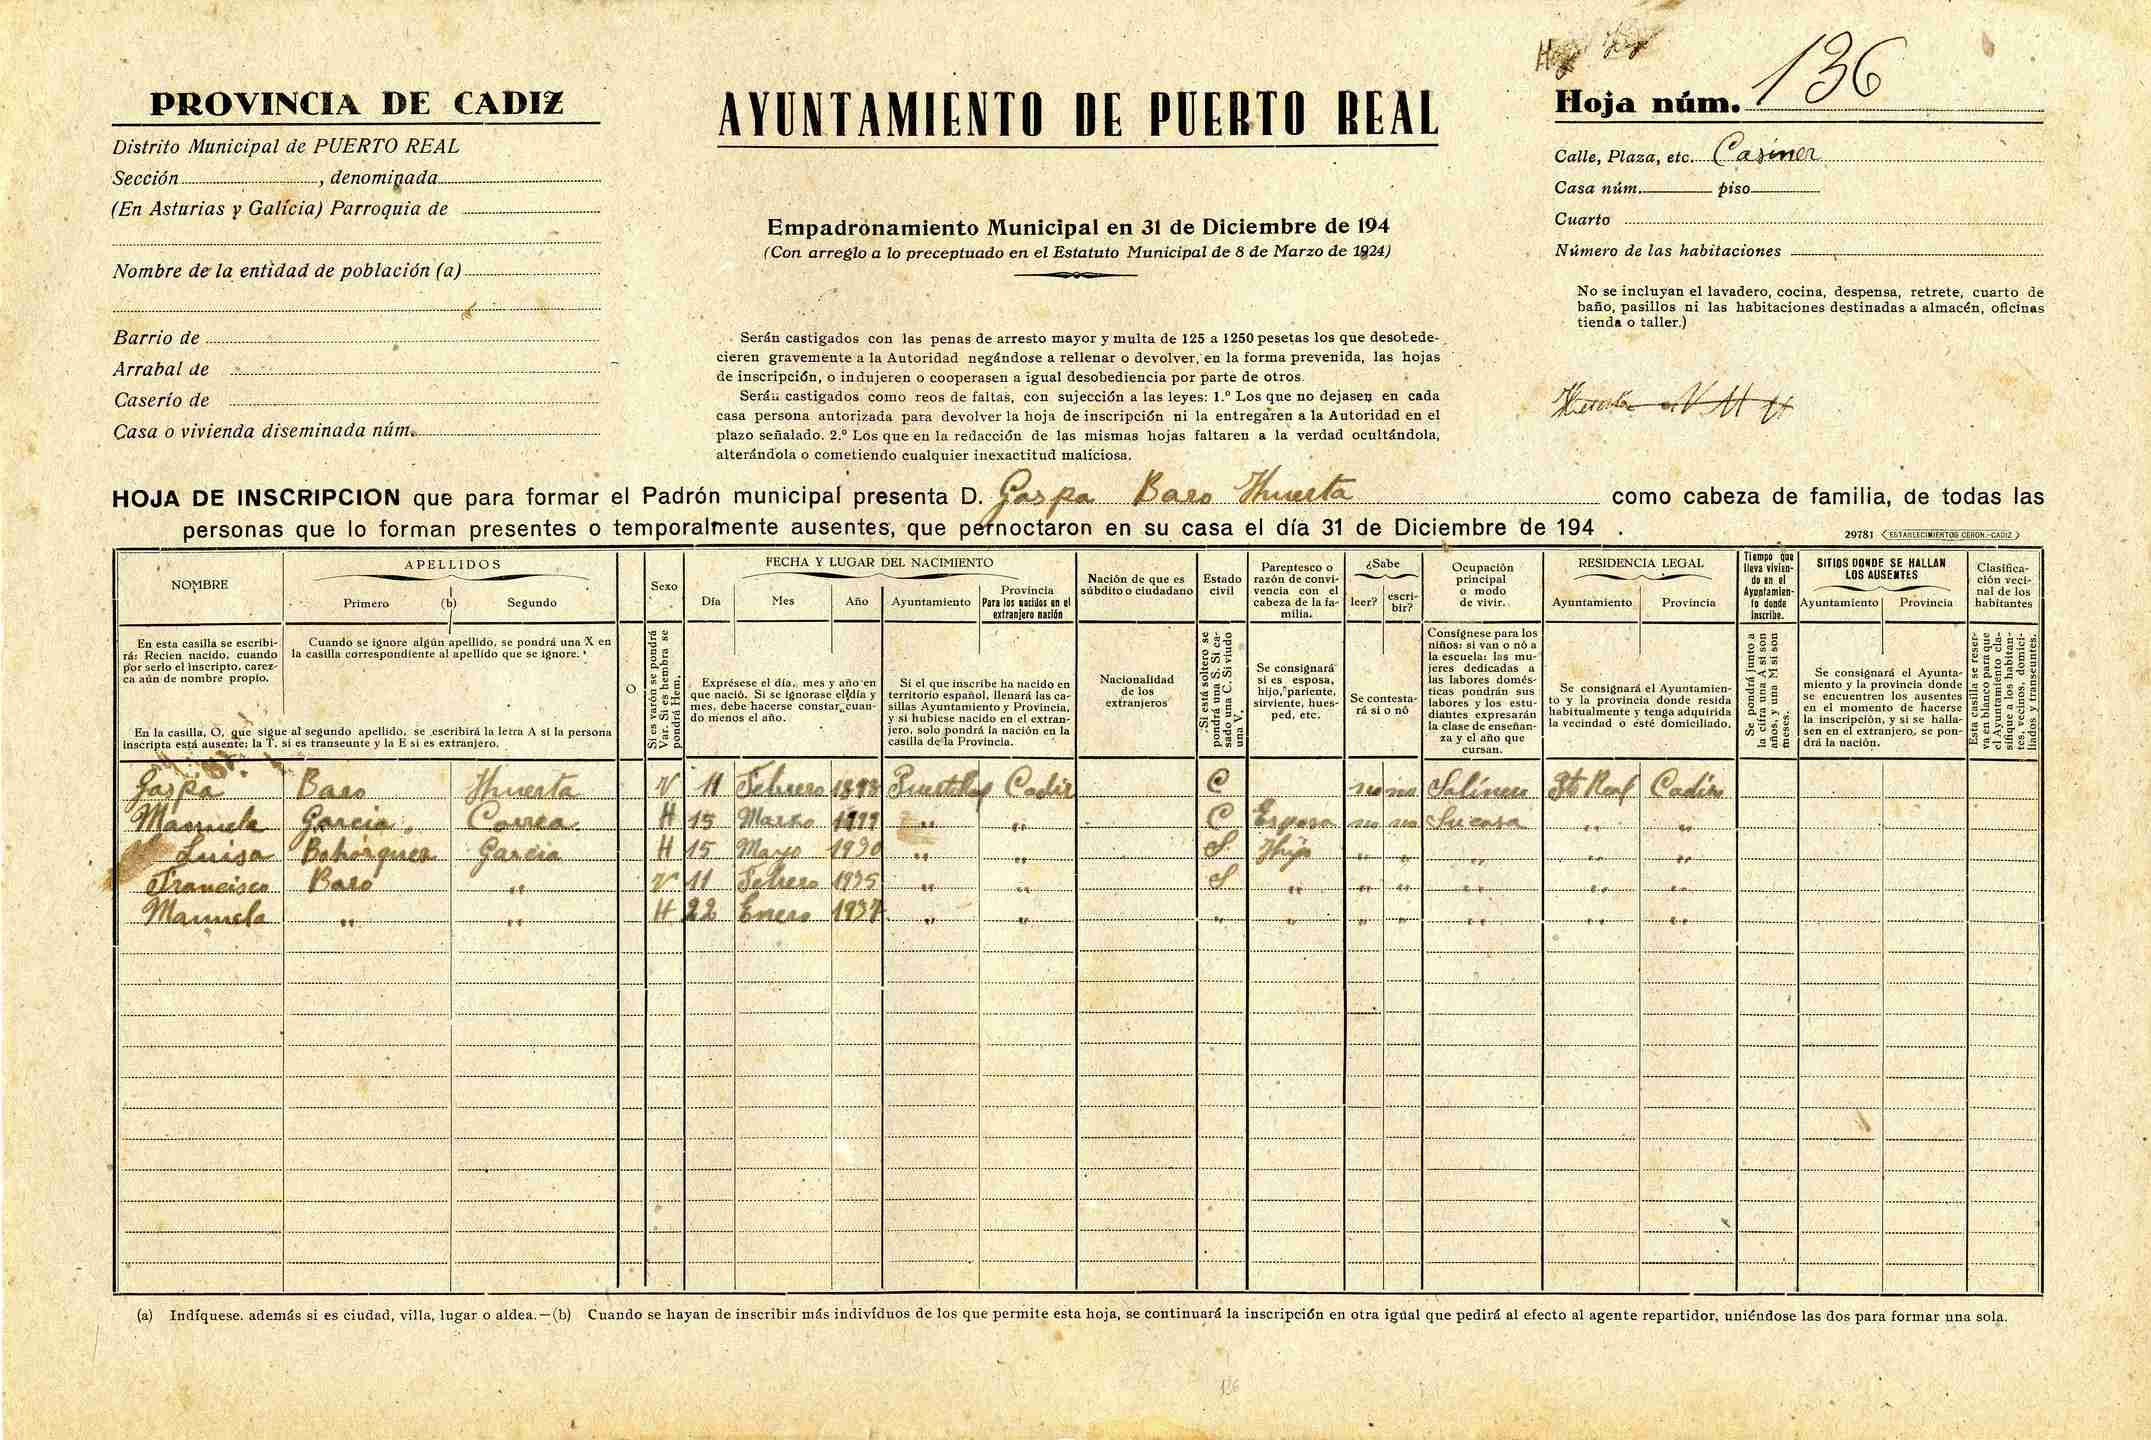 PROVINCIA DE CADIZ
Distrito Municipal de PUERTO REAL
Sección , denominada
(En Asturias y Galícia) Parroquia de
Nombre de la entidad de población (a)
Barrio de
Arrabal de
Caserío de
Casa o vivienda diseminada núm.
AYUNTAMIENTO DE PUERTO REAL
Empadronamiento Municipal en 31 de Diciembre de 194
(Con arreglo a lo preceptuado en el Estatuto Municipal de 8 de Marzo de 1924)
Serán castigados con las penas de arresto mayor y multa de 125 a 1250 pesetas los que desobede-
cieren gravemente a la Autoridad negándose a rellenar o devolver, en la forma prevenida, las hojas
de inscripción, o indujeren o cooperasen a igual desobediencia por parte de otros.
Serán castigados como reos de faltas, con sujección a las leyes: 1.º Los que no dejasen en cada
casa persona autorizada para devolver la hoja de inscripción ni la entregaren a la Autoridad en el
plazo señalado. 2.º Los que en la redacción de las mismas hojas faltaren a la verdad ocultándola,
alterándola o cometiendo cualquier inexactitud maliciosa.
Hoja núm. 136
Calle, Plaza, etc. Casines
Casa núm. piso
Cuarto
Número de las habitaciones
No se incluyan el lavadero, cocina, despensa, retrete, cuarto de
baño, pasillos ni las habitaciones destinadas a almacén, oficinas
tienda o taller.)
HOJA DE INSCRIPCION que para formar el Padrón municipal presenta D. Gaspa Baro Huerta como cabeza de familia, de todas las
personas que lo forman presentes o temporalmente ausentes, que pernoctaron en su casa el día 31 de Diciembre de 194 .
29781 ESTABLECIMIENTOS CERON.-CADIZ
NOMBRE
En esta casilla se escribi-
rá: Recien nacido, cuando
por serlo el inscripto, carez-
ca aún de nombre propio.
APELLIDOS
Primero (b) Segundo
Cuando se ignore algún apellido, se pondrá una X en
la casilla correspondiente al apellido que se ignore.
En la casilla, O, que sigue al segundo apellido, se escribirá la letra A si la persona
inscripta está ausente; la T, si es transeunte y la E si es extranjero.
O
Sexo
Si es varón se pondrá
Var. Si es hembra se
pondrá Hem.
FECHA Y LUGAR DEL NACIMIENTO
Día Mes Año Ayuntamiento Provincia
Para los nacidos en el
extranjero nación
Exprésese el día, mes y año en
que nació. Si se ignorase el día y
mes, debe hacerse constar cuan-
do menos el año.
Si el que inscribe ha nacido en
territorio español, llenará las ca-
sillas Ayuntamiento y Provincia,
y si hubiese nacido en el extran-
jero, solo pondrá la nación en la
casilla de la Provincia.
Nación de que es
súbdito o ciudadano
Nacionalidad
de los
extranjeros
Estado
civil
Si está soltero se
pondrá una S. Si ca-
sado una C. Si viudo
una V.
Parentesco o
razón de convi-
vencia con el
cabeza de la fa-
milia.
Se consignará
si es esposa,
hijo, pariente,
sirviente, hues-
ped, etc.
¿Sabe
leer? escri-
bir?
Se contesta-
rá sí o nó
Ocupación
principal
o modo
de vivir.
Consígnese para los
niños: si van o nó a
la escuela: las mu-
jeres dedicadas a
las labores domés-
ticas pondrán sus
labores y los estu-
diantes expresarán
la clase de enseñan-
za y el año que
cursan.
RESIDENCIA LEGAL
Ayuntamiento Provincia
Se consignará el Ayuntamien-
to y la provincia donde resida
habitualmente y tenga adquirida
la vecindad o esté domiciliado.
Tiempo que
lleva vivien-
do en el
Ayuntamien-
to donde
inscribe.
Se pondrá junto a
la cifra una A si son
años, y una M si son
meses.
SITIOS DONDE SE HALLAN
LOS AUSENTES
Ayuntamiento Provincia
Se consignará el Ayunta-
miento y la provincia donde
se encuentren los ausentes
en el momento de hacerse
la inscripción, y si se halla-
sen en el extranjero, se pon-
drá la nación.
Clasifica-
ción veci-
nal de los
habitantes
Esta casilla se reser-
va en blanco para que
el Ayuntamiento cla-
sifique a los habitan-
tes, vecinos, domici-
liados y transeuntes.
Gaspa Baro Huerta V 11 Febrero 1898 Cadiz C no no Salinero Pto Real Cadiz
Manuela Garcia Correa H 15 Marzo " " C Esposa no no Su casa " "
Luisa Bohorquez Garcia H 15 Mayo 1930 " " S Hijo " " " " "
Francisco Baro " V 11 Febrero 1935 " " S " " " " " "
Manuela " " H 22 Enero 1937 " " " " " " " " "
(a) Indíquese. además si es ciudad, villa, lugar o aldea.—(b) Cuando se hayan de inscribir más indivíduos de los que permite esta hoja, se continuará la inscripción en otra igual que pedirá al efecto al agente repartidor, uniéndose las dos para formar una sola.
136